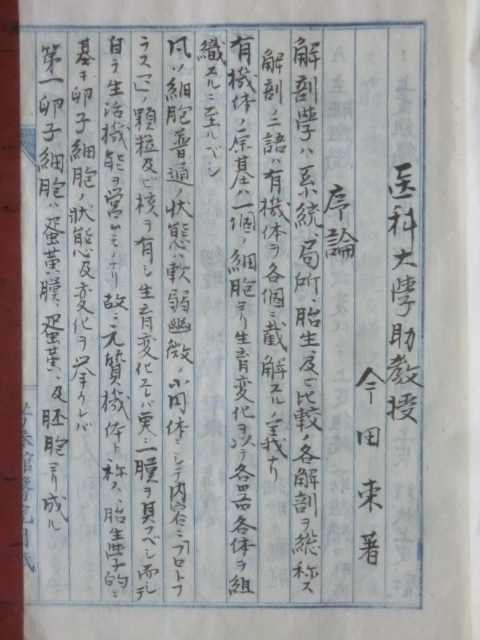 医科大學助教授
今田束著
序論
解剖學ハ系統、局所、胎生及ビ比較ノ各解剖ヲ総称ス
解剖ノ二語ハ有機体ヲ各個ニ截解スルノ義ナリ
有機体ノ原基ハ一個ノ細胞ヨリ生育変化ヲ以テ各器各体ヲ組
織スルニ至ルベシ
凡ソ細胞普通ノ状態ハ軟弱幽微ノ小円体ニシテ内容ニ「プロトプ
ラスマ」ノ顆粒及ビ核ヲ有シ生育変化スレバ更ニ一膜ヲ具フベシ而シテ
自ラ生活機能ヲ営ムモノナリ故ニ元質機体ト称ス、胎生學的ニ
基キ卵子細胞ノ状態及変化ヲ挙クレバ
第一卵子細胞ハ蛋黄膜、蛋黄、及胚胞ヨリ成ル